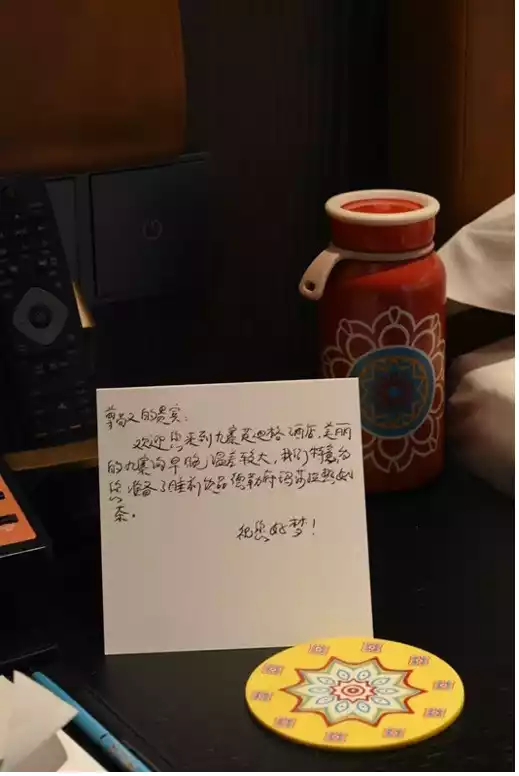 尊敬的贵宾:
欢迎您来到九寨英迪格酒店,美丽
的九寨沟早晚温差较大,我们特意为
您准备了睡前饮品热奶
茶。
祝您好梦!